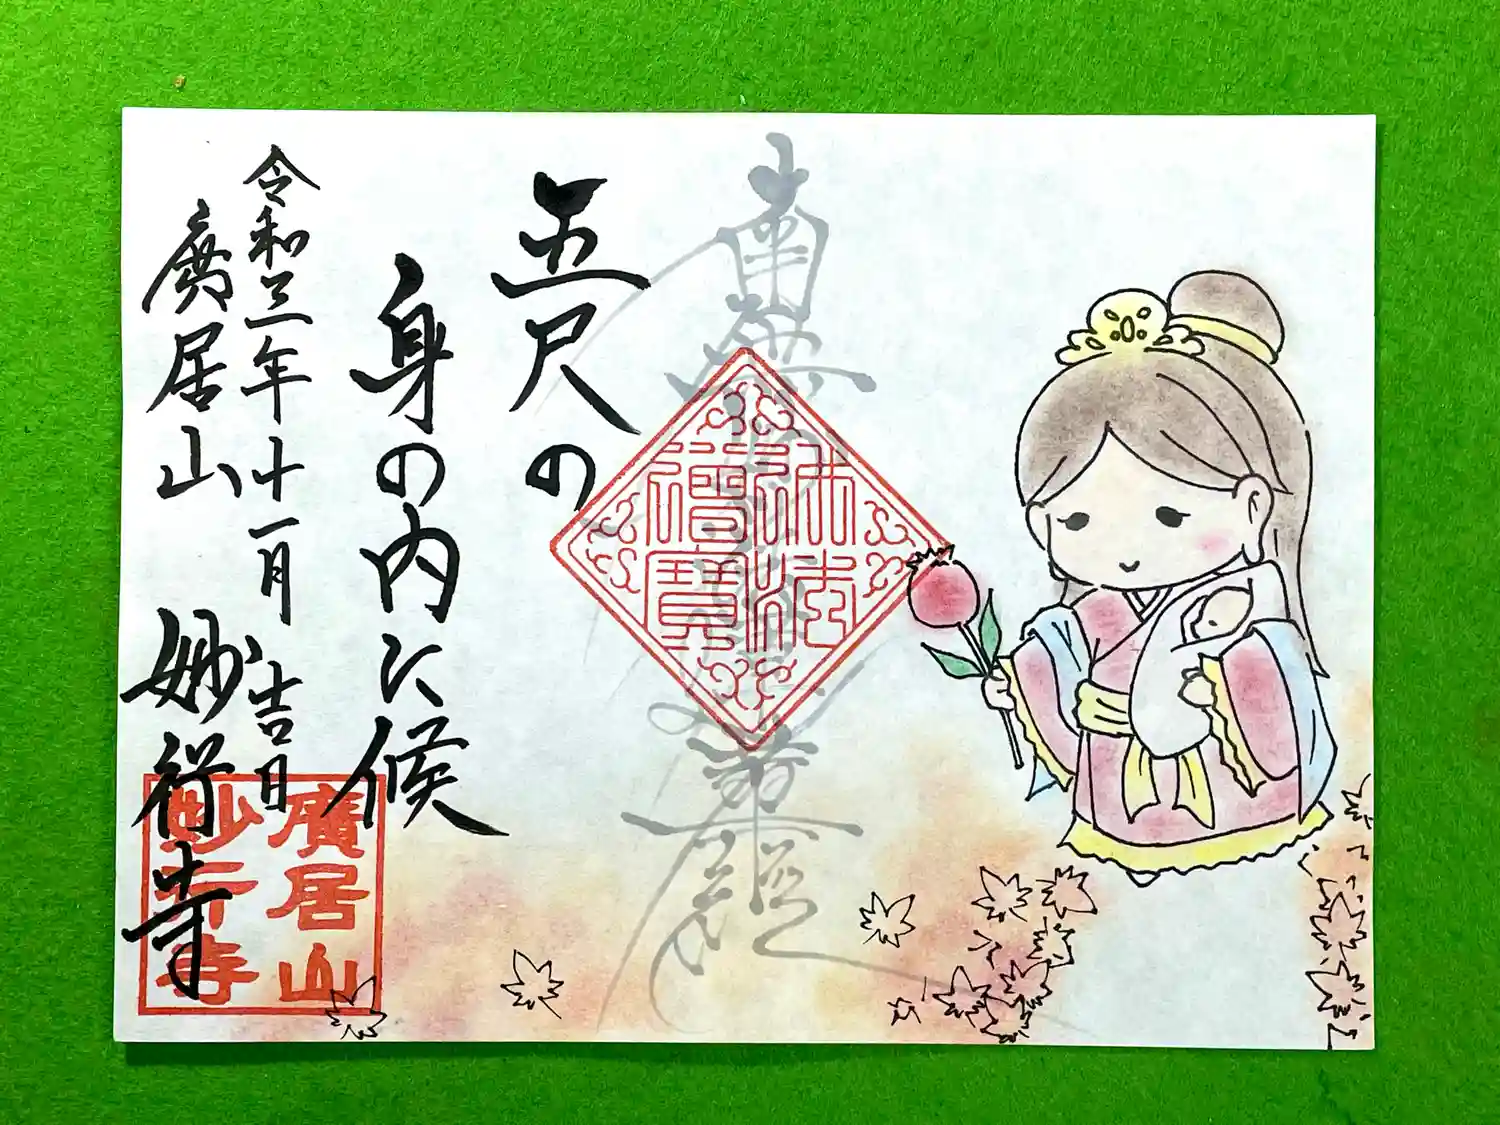 南無妙法蓮華経
佛法
僧寶
五尺の
身の内に候
令和三年十一月吉日
廣居山 妙行寺
廣居山
妙行寺